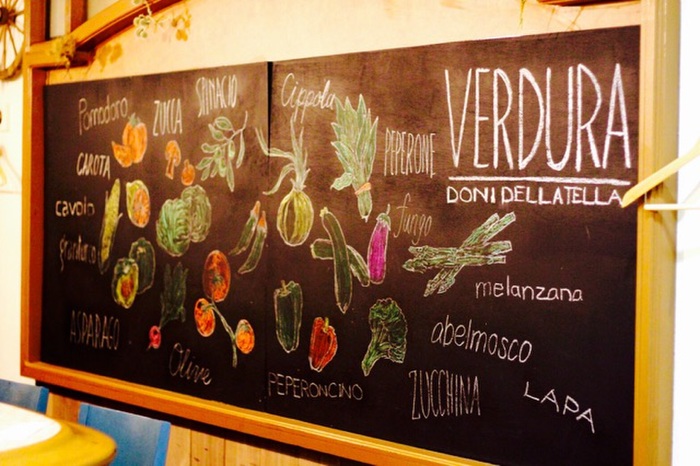 Pomodoro
ZUCCA
SPINACIO
CAROTA
cavolo
granturco
ASPARAGO
Olive
Cippola
PEPERONE
fungo
VERDURA
DONI DELLATELLA
melanzana
abelmosco
ZUCCHINA
LAPA
PEPERONCINO